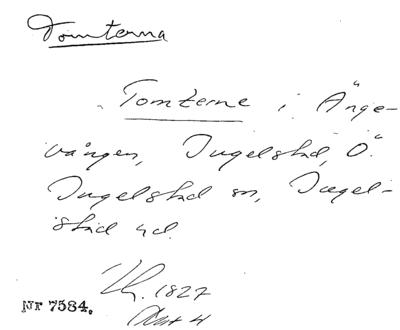 Tomterna
"Tomterne i Änge-
vången, Ingelstad, Ö.
Ingelstad sn, Ingel-
stad hd.
1827
Akt 4
Nr 7584.